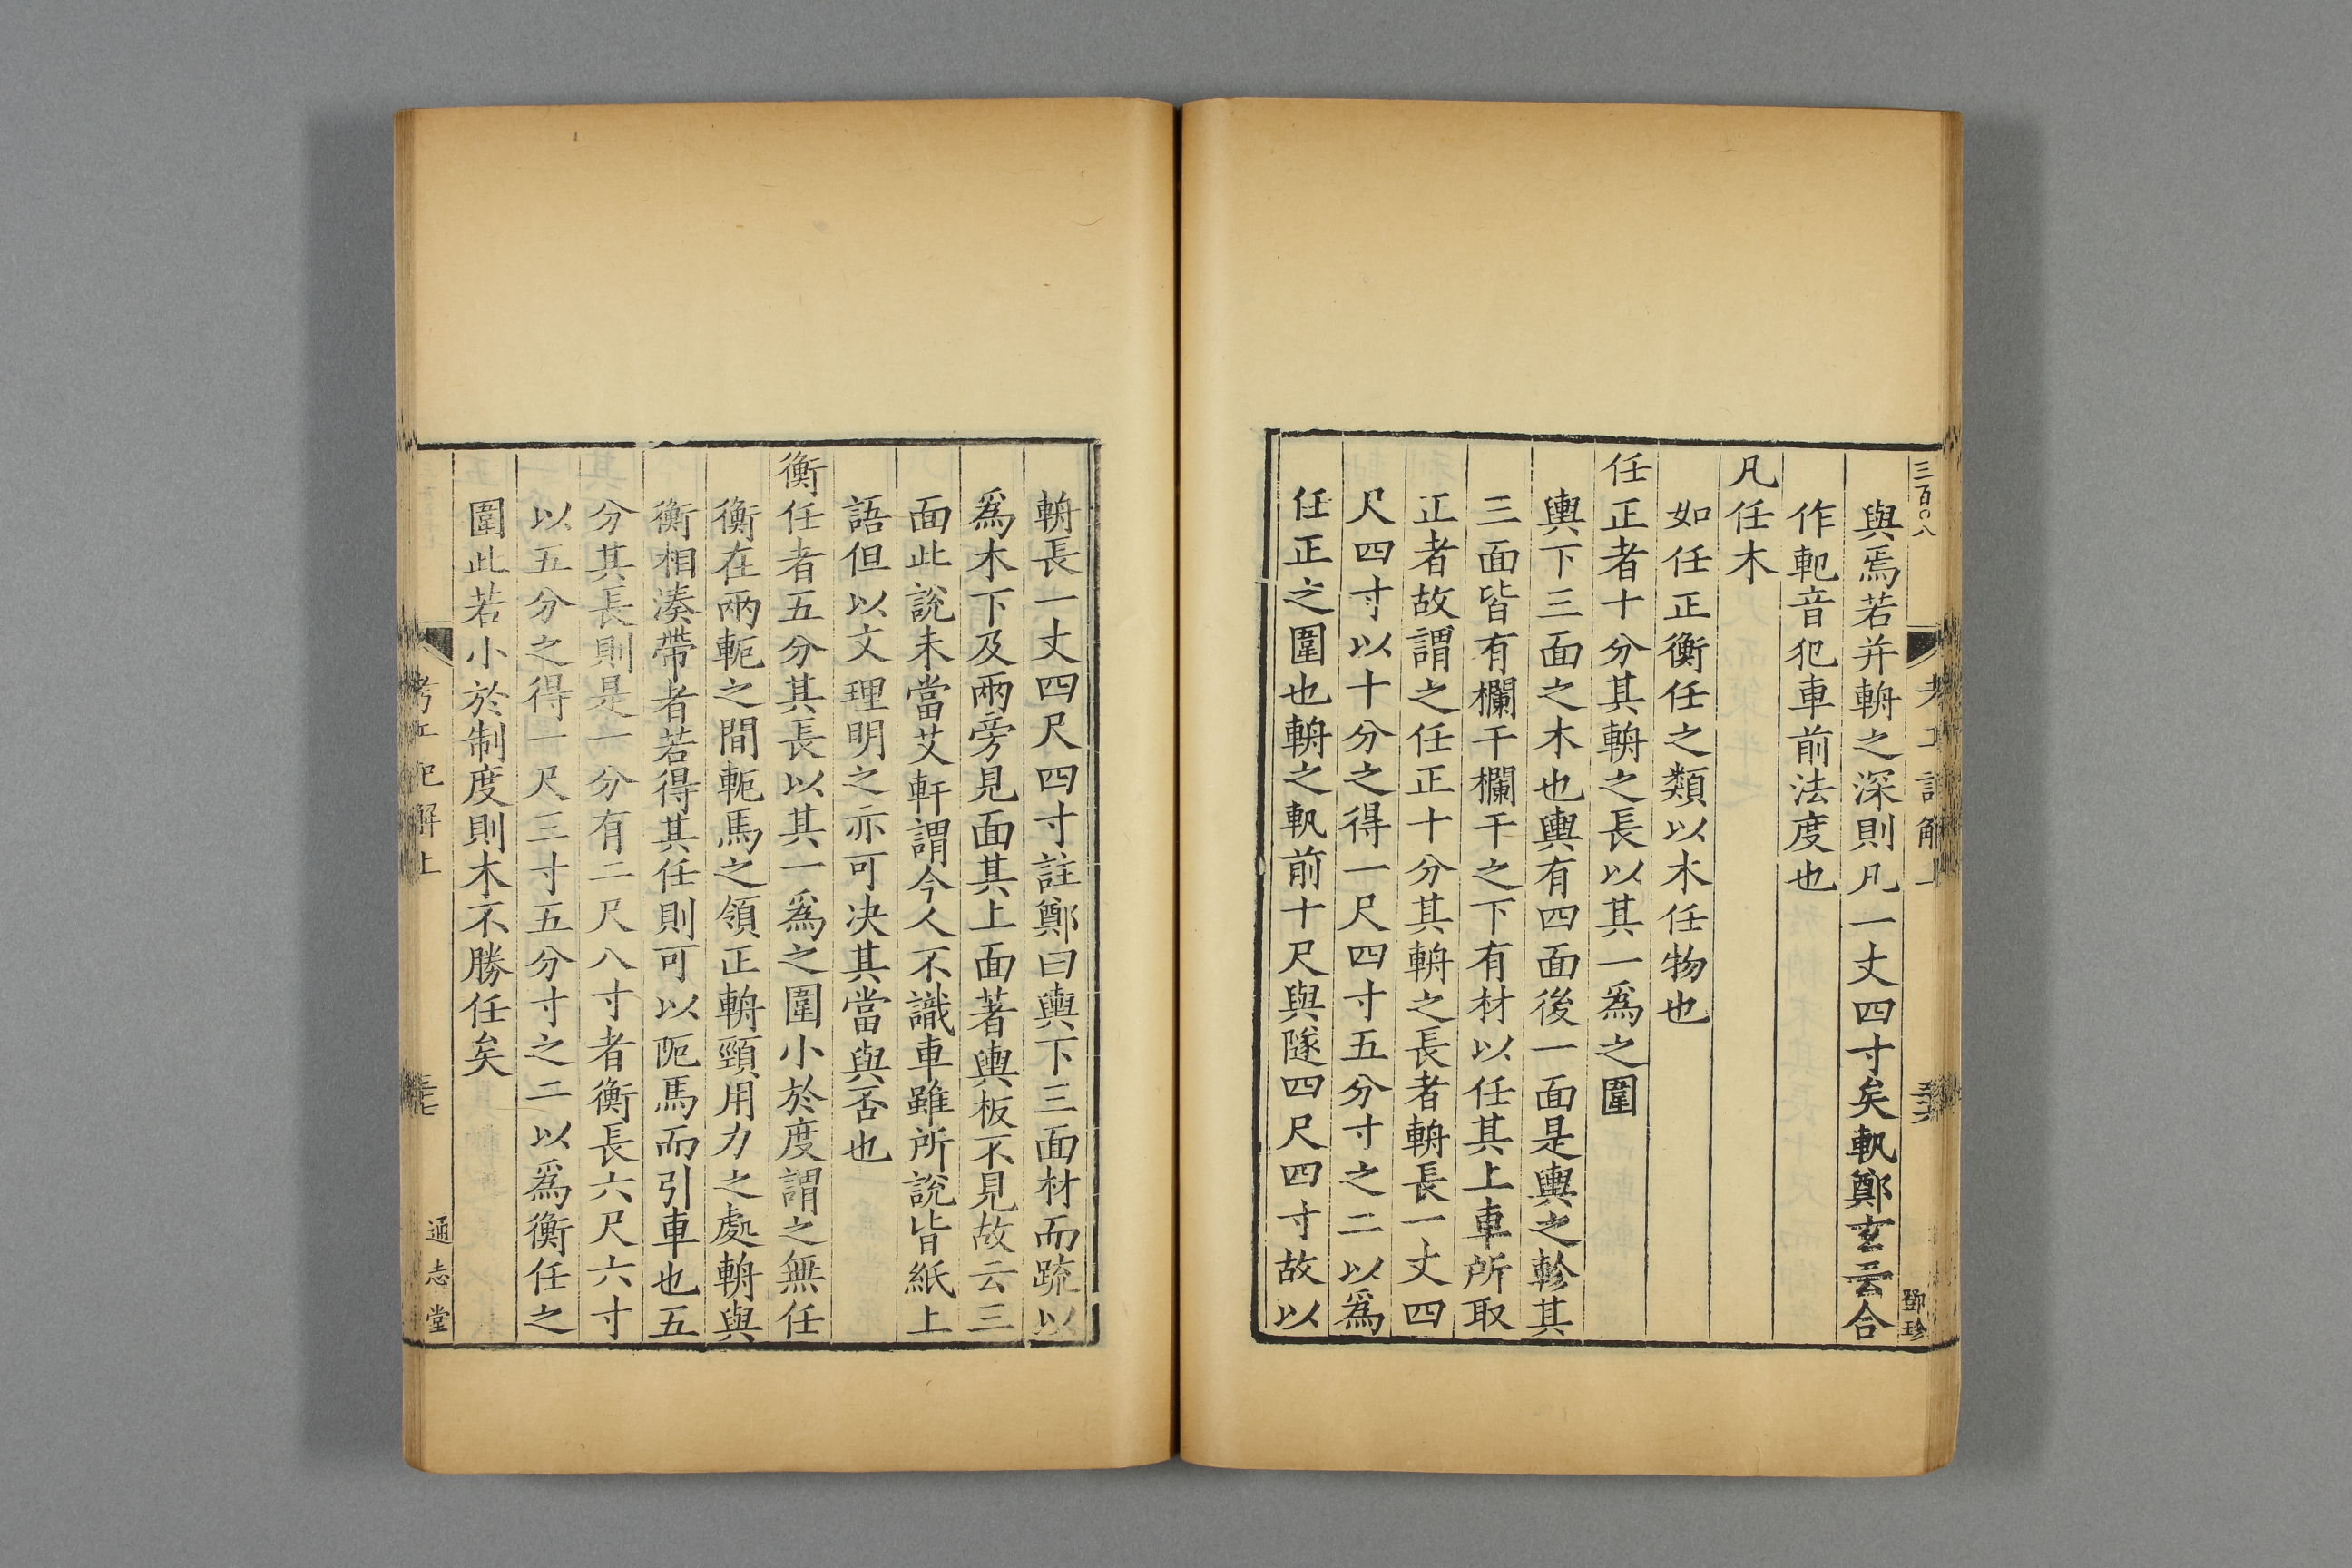 三百〇八
與焉若并輈之深則凡一丈四寸矣軓鄭玄云合
作軓音犯車前法度也
凡任木
如任正衡任之類以木任物也
任正者十分其輈之長以其一爲之圍
輿下三面之木也輿有四面後一面是輿之軫其
三面皆有欄干欄干之下有材以任其上車所取
正者故謂之任正十分其輈之長者輈長一丈四
尺四寸以十分之得一尺四寸五分寸之二以爲
任正之圍也輈之軓前十尺與隧四尺四寸故以
鄧珍
輈長一丈四尺四寸註鄭曰輿下三面材而䟽以
爲木下及兩旁見面其上面著輿板不見故云三
面此說未當艾軒謂今人不識車雖所說皆紙上
語但以文理明之亦可决其當與否也
衡任者五分其長以其一爲之圍小於度謂之無任
衡在兩軛之間軛馬之領正輈頸用力之處輈與
衡相湊帶者若得其任則可以阨馬而引車也五
分其長則是一分有二尺八寸者衡長六尺六寸
以五分之得一尺三寸五分寸之二以爲衡任之
圍此若小於制度則木不勝任矣
考工記解上
通志堂